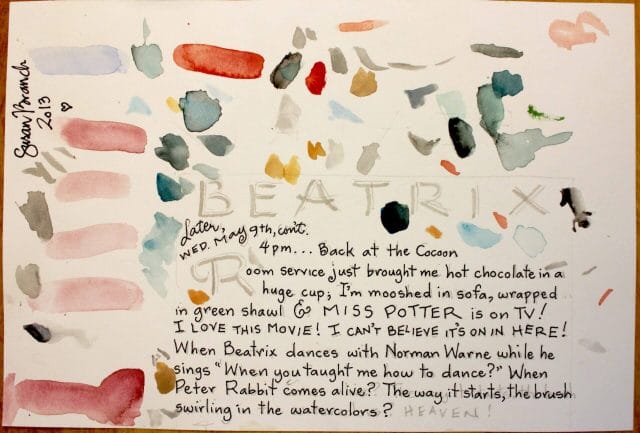 Susan Branch
2013
BEATRIX
Later,
WED. MAY 9th, cont.
4pm... Back at the Cocoon
Room service just brought me hot chocolate in a
huge cup; I'm mooshed in sofa, wrapped
in green shawl & MISS POTTER is on TV!
I LOVE THIS MOVIE! I CAN'T BELIEVE IT'S ON IN HERE!
When Beatrix dances with Norman Warne while he
sings "When you taught me how to dance?" When
Peter Rabbit comes alive? The way it starts, the brush
swirling in the watercolors? HEAVEN!